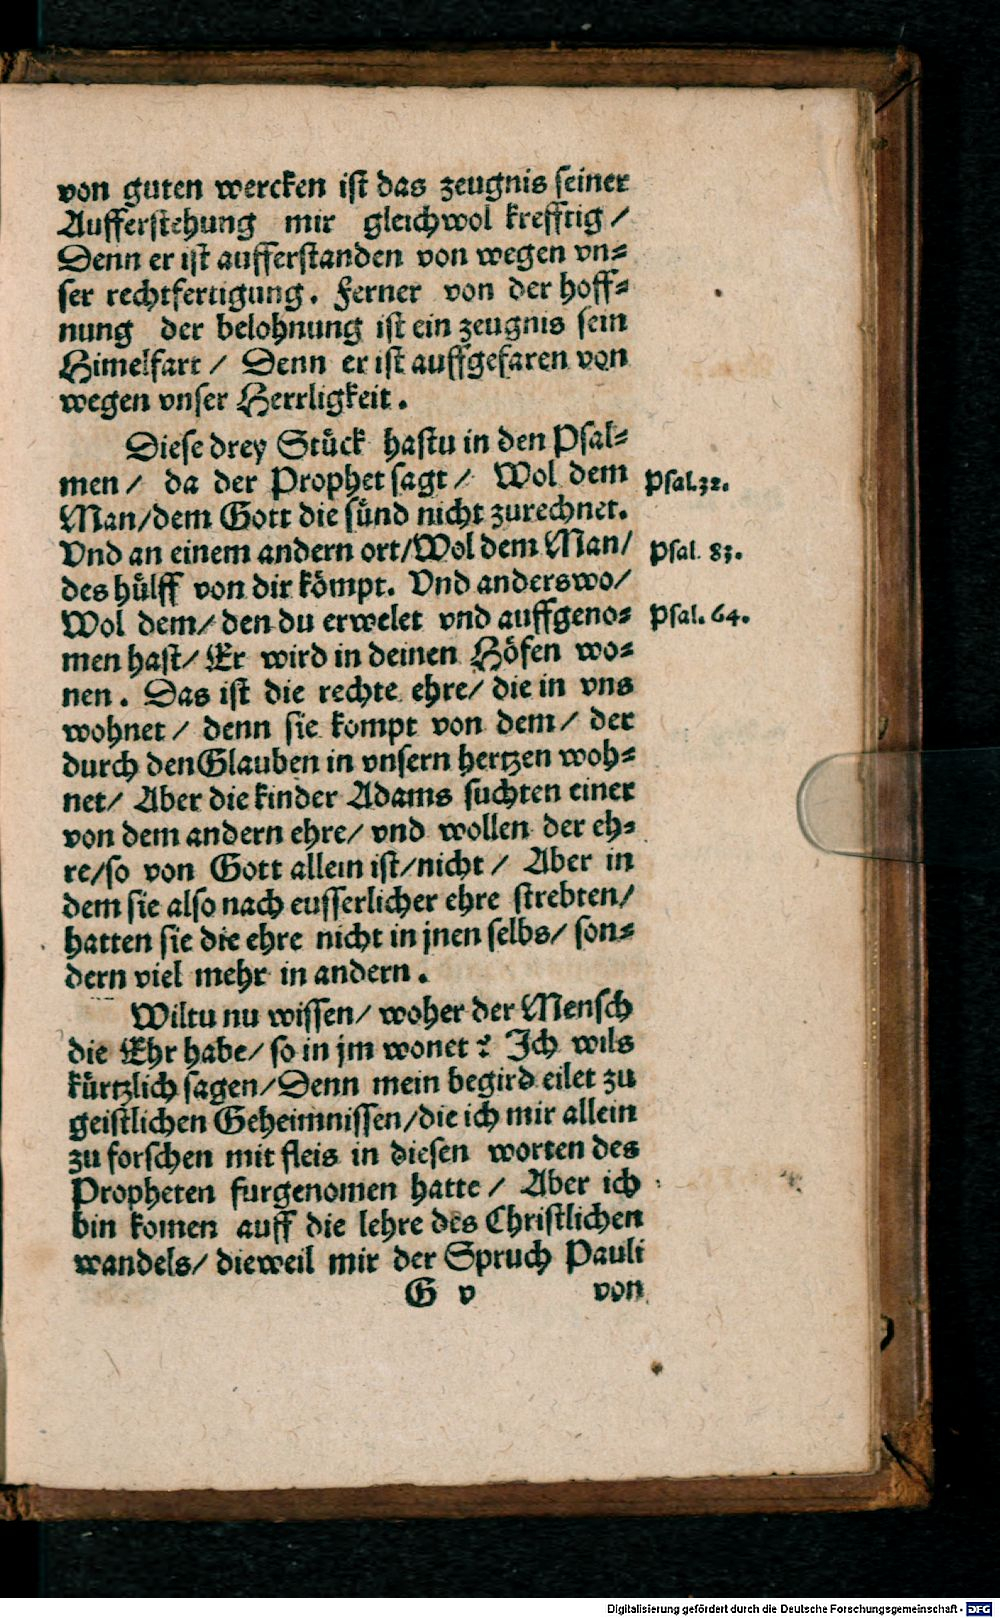 von guten wercken ist das zeugnis seiner
Aufferstehung mir gleichwol krefftig /
Denn er ist aufferstanden von wegen vn⸗
ser rechtfertigung. Ferner von der hoff⸗
nung der belohnung ist ein zeugnis sein
Himelfart / Denn er ist auffgefaren von
wegen vnser Herrligkeit.
Diese drey Stück hastu in den Psal⸗
men / da der Prophet sagt / Wol dem Psal. 32.
Man/dem Gott die sünd nicht zurechnet.
Vnd an einem andern ort/Wol dem Man/ Psal. 83.
des hülff von dir kömpt. Vnd anderswo/
Wol dem/ den du erwelet vnd auffgeno⸗ Psal. 64.
men hast/ Er wird in deinen Höfen wo⸗
nen. Das ist die rechte ehre/ die in vns
wohnet / denn sie kompt von dem/ der
durch den Glauben in vnsern hertzen woh⸗
net/ Aber die kinder Adams suchten einer
von dem andern ehre/ vnd wollen der eh⸗
re/so von Gott allein ist/nicht / Aber in
dem sie also nach eusserlicher ehre strebten/
hatten sie die ehre nicht in jnen selbs/ son⸗
dern viel mehr in andern.
Wiltu nu wissen/ woher der Mensch
die Ehr habe/ so in jm wonet? Ich wils
kürtzlich sagen/Denn mein begird eilet zu
geistlichen Geheimnissen/die ich mir allein
zu forschen mit fleis in diesen worten des
Propheten furgenomen hatte / Aber ich
bin komen auff die lehre des Christlichen
wandels/ dieweil mir der Spruch Pauli
G v von
Digitalisierung gefördert durch die Deutsche Forschungsgemeinschaft - DFG